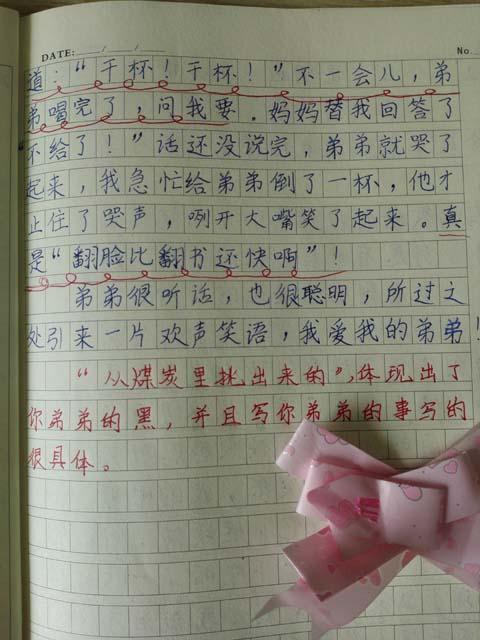 DATE: / /
No.
道：“干杯！干杯！”不一会儿，弟
弟喝完了，问我要.妈妈替我回答了
不给了！”话还没说完，弟弟就哭了
起来，我急忙给弟弟倒了一杯，他才
止住了哭声，咧开大嘴笑了起来。真
是“翻脸比翻书还快啊”！
弟弟很听话，也很聪明，所过之
处引来一片欢声笑语，我爱我的弟弟！
“从煤炭里挑出来的”，体现出了
你弟弟的黑，并且写你弟弟的事写的
很具体。